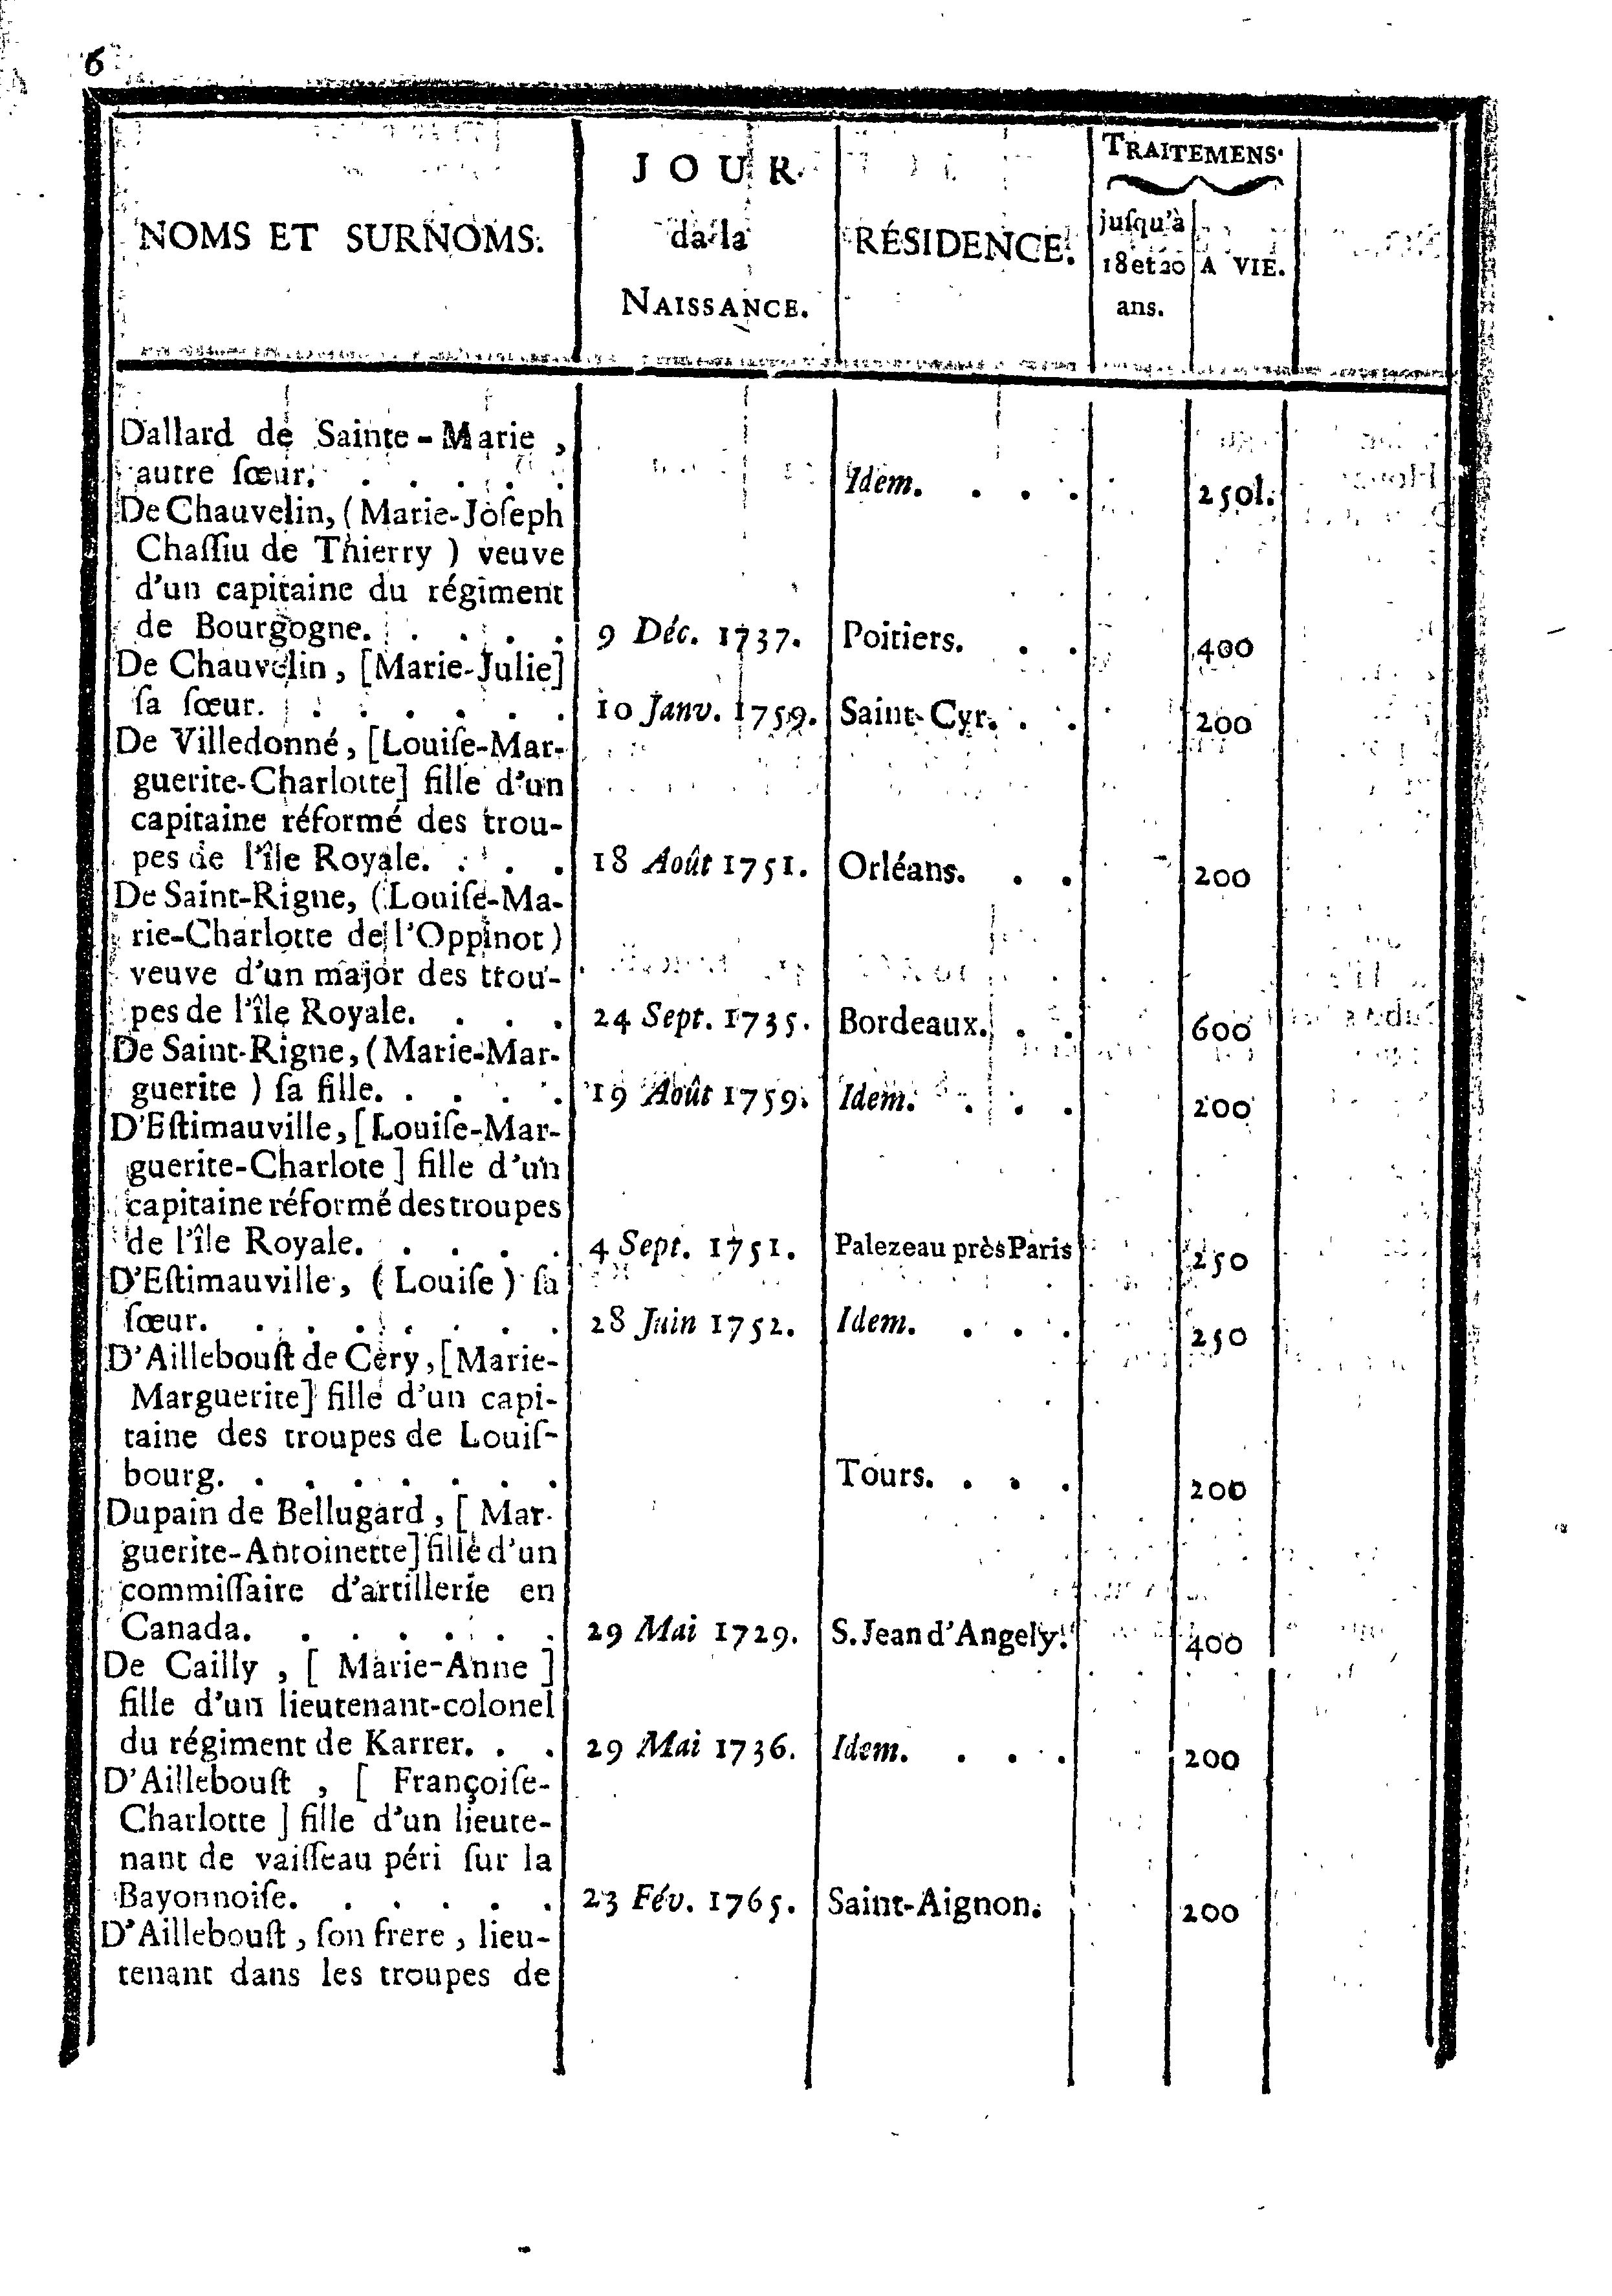 6
NOMS ET SURNOMS.
JOUR
da la
NAISSANCE.
RÉSIDENCE.
TRAITEMENS.
juſqu'à
18 et 20
ans.
A VIE.
Dallard de Sainte-Marie,
autre ſœur. . . . . . Idem. . . . 250l.
De Chauvelin, (Marie-Joſeph
Chaſſiu de Thierry) veuve
d'un capitaine du régiment
de Bourgogne. . . . . 9 Déc. 1737. Poitiers. . . 400
De Chauvelin, [Marie-Julie]
ſa ſœur. . . . . . . 10 Janv. 1759. Saint-Cyr. . . 200
De Villedonné, [Louiſe-Mar-
guerite-Charlotte] fille d'un
capitaine réformé des trou-
pes de l'île Royale. . . . 18 Août 1751. Orléans. . . 200
De Saint-Rigne, (Louiſe-Ma-
rie-Charlotte de l'Oppinot)
veuve d'un major des trou-
pes de l'île Royale. . . . 24 Sept. 1735. Bordeaux. . . 600
De Saint-Rigne, (Marie-Mar-
guerite) ſa fille. . . . . 19 Août 1759. Idem. . . . 200
D'Eſtimauville, [Louiſe-Mar-
guerite-Charlote] fille d'un
capitaine réformé des troupes
de l'île Royale. . . . . 4 Sept. 1751. Palezeau près Paris 250
D'Eſtimauville, (Louiſe) ſa
ſœur. . . . . . . . 28 Juin 1752. Idem. . . . 250
D'Aillebouſt de Cery, [Marie-
Marguerite] fille d'un capi-
taine des troupes de Louiſ-
bourg. . . . . . . . Tours. . . . 200
Dupain de Bellugard, [Mar-
guerite-Antoinette] fille d'un
commiſſaire d'artillerie en
Canada. . . . . . . 29 Mai 1729. S. Jean d'Angely. 400
De Cailly, [Marie-Anne]
fille d'un lieutenant-colonel
du régiment de Karrer. . . 29 Mai 1736. Idem. . . . 200
D'Aillebouſt, [Françoiſe-
Charlotte] fille d'un lieute-
nant de vaiſſeau péri ſur la
Bayonnoiſe. . . . . . 23 Fév. 1765. Saint-Aignon. 200
D'Aillebouſt, ſon frere, lieu-
tenant dans les troupes de